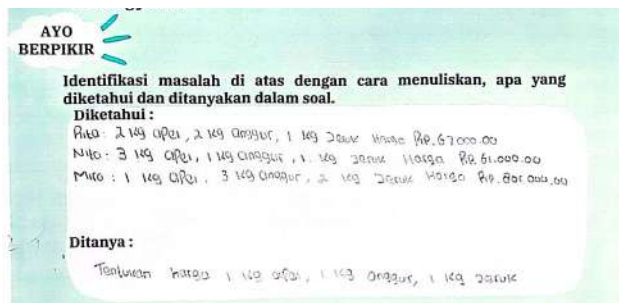 AYO
BERPIKIR
Identifikasi masalah di atas dengan cara menuliskan, apa yang
diketahui dan ditanyakan dalam soal.
Diketahui :
Rita : 2 kg apel, 2 kg anggur, 1 kg Jeruk Harga Rp. 67.000.00
Nito : 3 kg apel, 1 kg anggur, 1 kg Jeruk Harga Rp. 61.000.00
Mira : 1 kg apel, 3 kg anggur, 2 kg Jeruk Harga Rp.
Ditanya :
Tentukan harga 1 kg apel, 1 kg anggur, 1 kg Jeruk